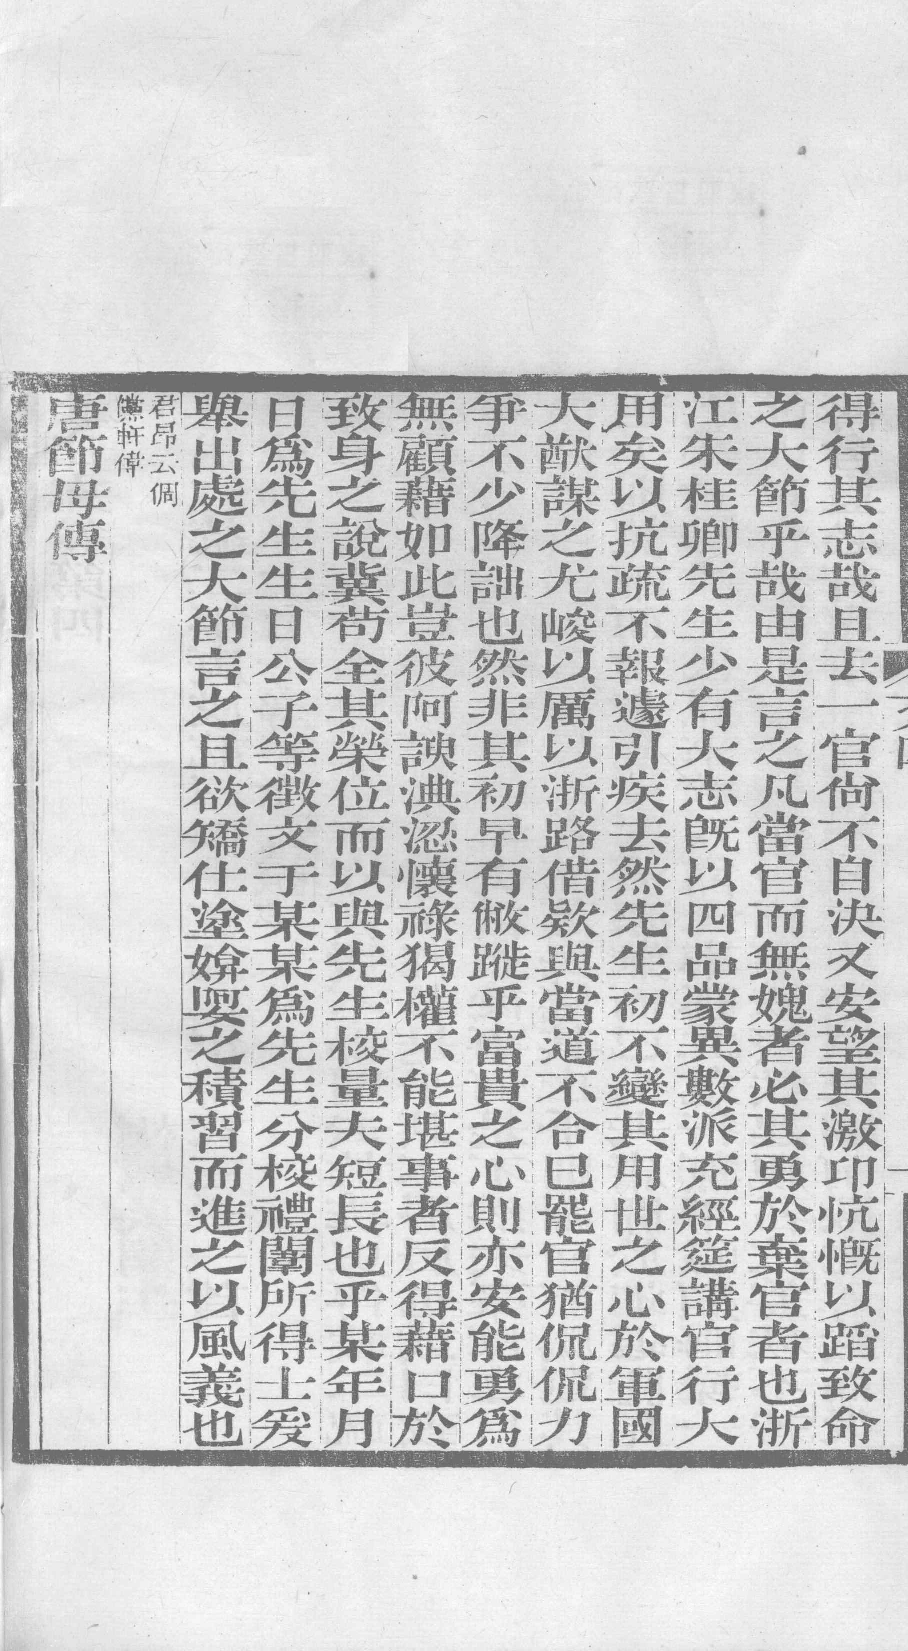 得行其志哉且去一官尙不自決又安望其激卬忼慨以蹈致命
之大節乎哉由是言之凡當官而無媿者必其勇於棄官者也浙
江朱桂卿先生少有大志旣以四品蒙異數派充經筵講官行大
用矣以抗疏不報遽引疾去然先生初不變其用世之心於軍國
大猷謀之尤峻以厲以浙路借款與當道不合已罷官猶侃侃力
爭不少降詘也然非其初早有敝蹝乎富貴之心則亦安能勇爲
無顧藉如此豈彼阿諛淟涊懷祿猲權不能堪事者反得藉口於
致身之說冀苟全其榮位而以與先生校量夫短長也乎某年月
日爲先生生日公子等徵文于某某爲先生分校禮闈所得士爰
舉出處之大節言之且欲矯仕塗媕娿之積習而進之以風義也
君昂云倜
儻軒偉
唐節母傳